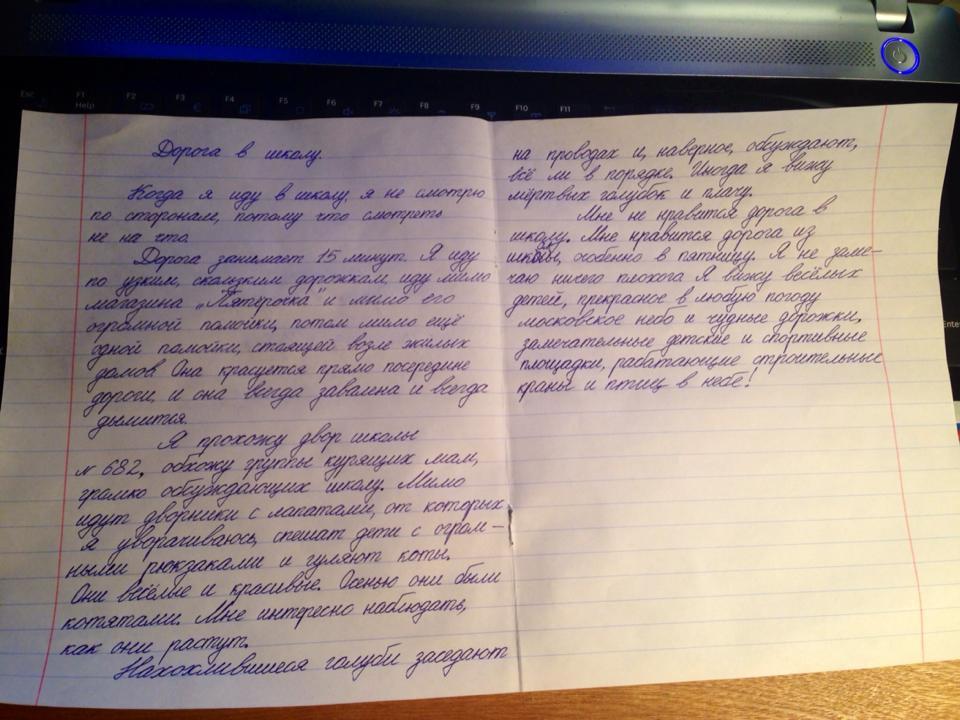 Esc
F1
Help
F2
F3
F4
F5
F6
F7
F8
F9
F10
F11
Дорога в школу.
Когда я иду в школу, я не смотрю
по сторонам, потому что смотреть
не на что.
Дорога занимает 15 минут. Я иду
по узким, скользким дорожкам, иду мимо
магазина „Пятёрочка" и мимо его
огромной помойки, потом мимо ещё
одной помойки, стоящей возле жилых
домов. Она красуется прямо посередине
дороги, и она всегда завалена и всегда
дымится.
Я прохожу двор школы
№ 682, обхожу группы курящих мам,
громко обсуждающих школу. Мимо
идут дворники с лопатами, от которых
я уворачиваюсь, спешат дети с огром-
ными рюкзаками и гуляют коты.
Они весёлые и красивые. Осенью они были
котятами. Мне интересно наблюдать,
как они растут.
Нахохлившиеся голуби заседают
на проводах и, наверное, обсуждают,
всё ли в порядке. Иногда я вижу
мёртвых голубок и плачу.
Мне не нравится дорога в
школу. Мне нравится дорога из
школы, особенно в пятницу. Я не заме-
чаю ничего плохого. Я вижу весёлых
детей, прекрасное в любую погоду
московское небо и чудные дорожки,
замечательные детские и спортивные
площадки, работающие строительные
краны и птиц в небе!